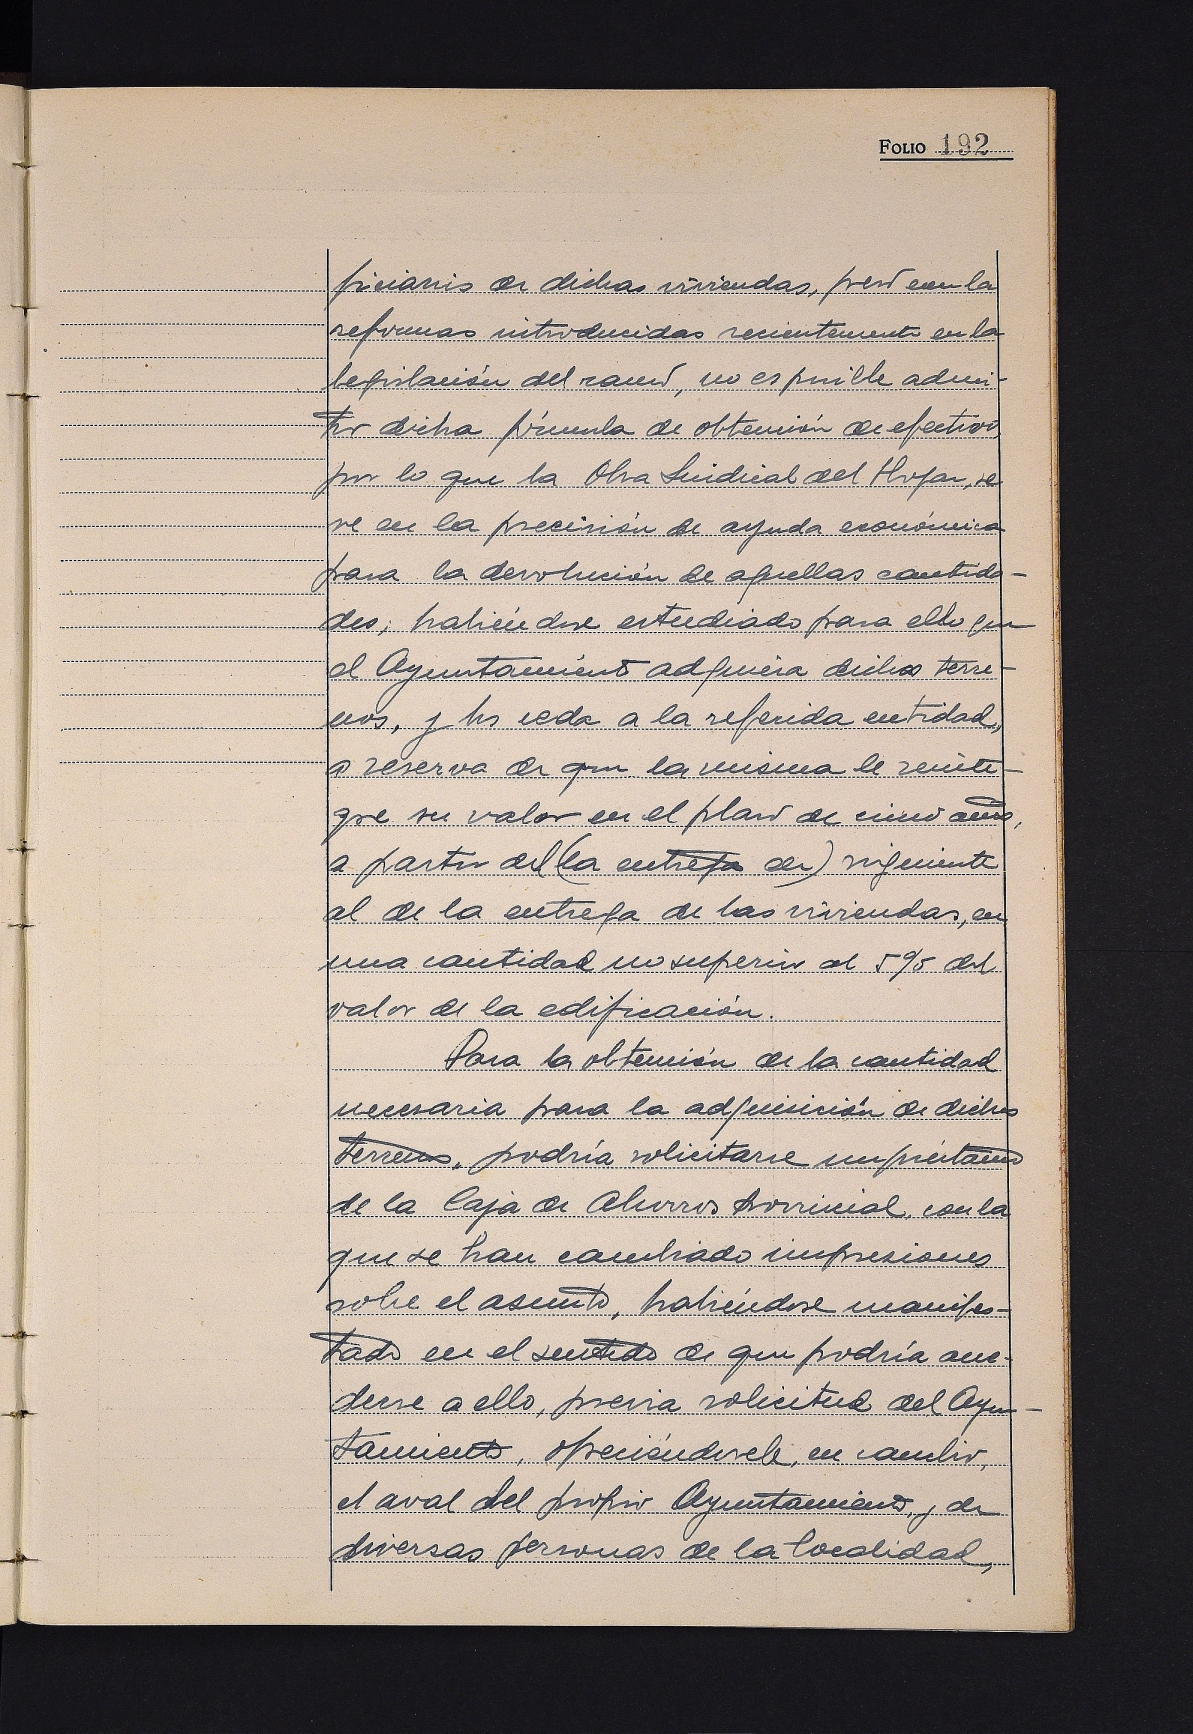 FOLIO 192
ficiarios de dichas viviendas, pero con la
reformas introducidas recientemente en la
legislación del ramo, no es posible admi-
tir dicha fórmula de obtención de efectivo,
por lo que la Obra Sindical del Hogar, se
ve en la precisión de ayuda económica
para la devolución de aquellas cantida-
des; habiéndose estudiado para ello que
el Ayuntamiento adquiera dichos terre-
nos, y los ceda a la referida entidad,
a reserva de que la misma le reinte-
gre su valor en el plazo de cinco años,
a partir del (la entrega de) siguiente
al de la entrega de las viviendas, en
una cantidad no superior al 5% del
valor de la edificación.
Para la obtención de la cantidad
necesaria para la adquisición de dichos
terrenos, podría solicitarse un préstamo
de la Caja de Ahorros Provincial, con la
que se han cambiado impresiones
sobre el asunto, habiéndose manifes-
tado en el sentido de que podría acce-
derse a ello, previa solicitud del Ayun-
tamiento, ofreciéndosele, en cambio,
el aval del propio Ayuntamiento, y de
diversas personas de la localidad,